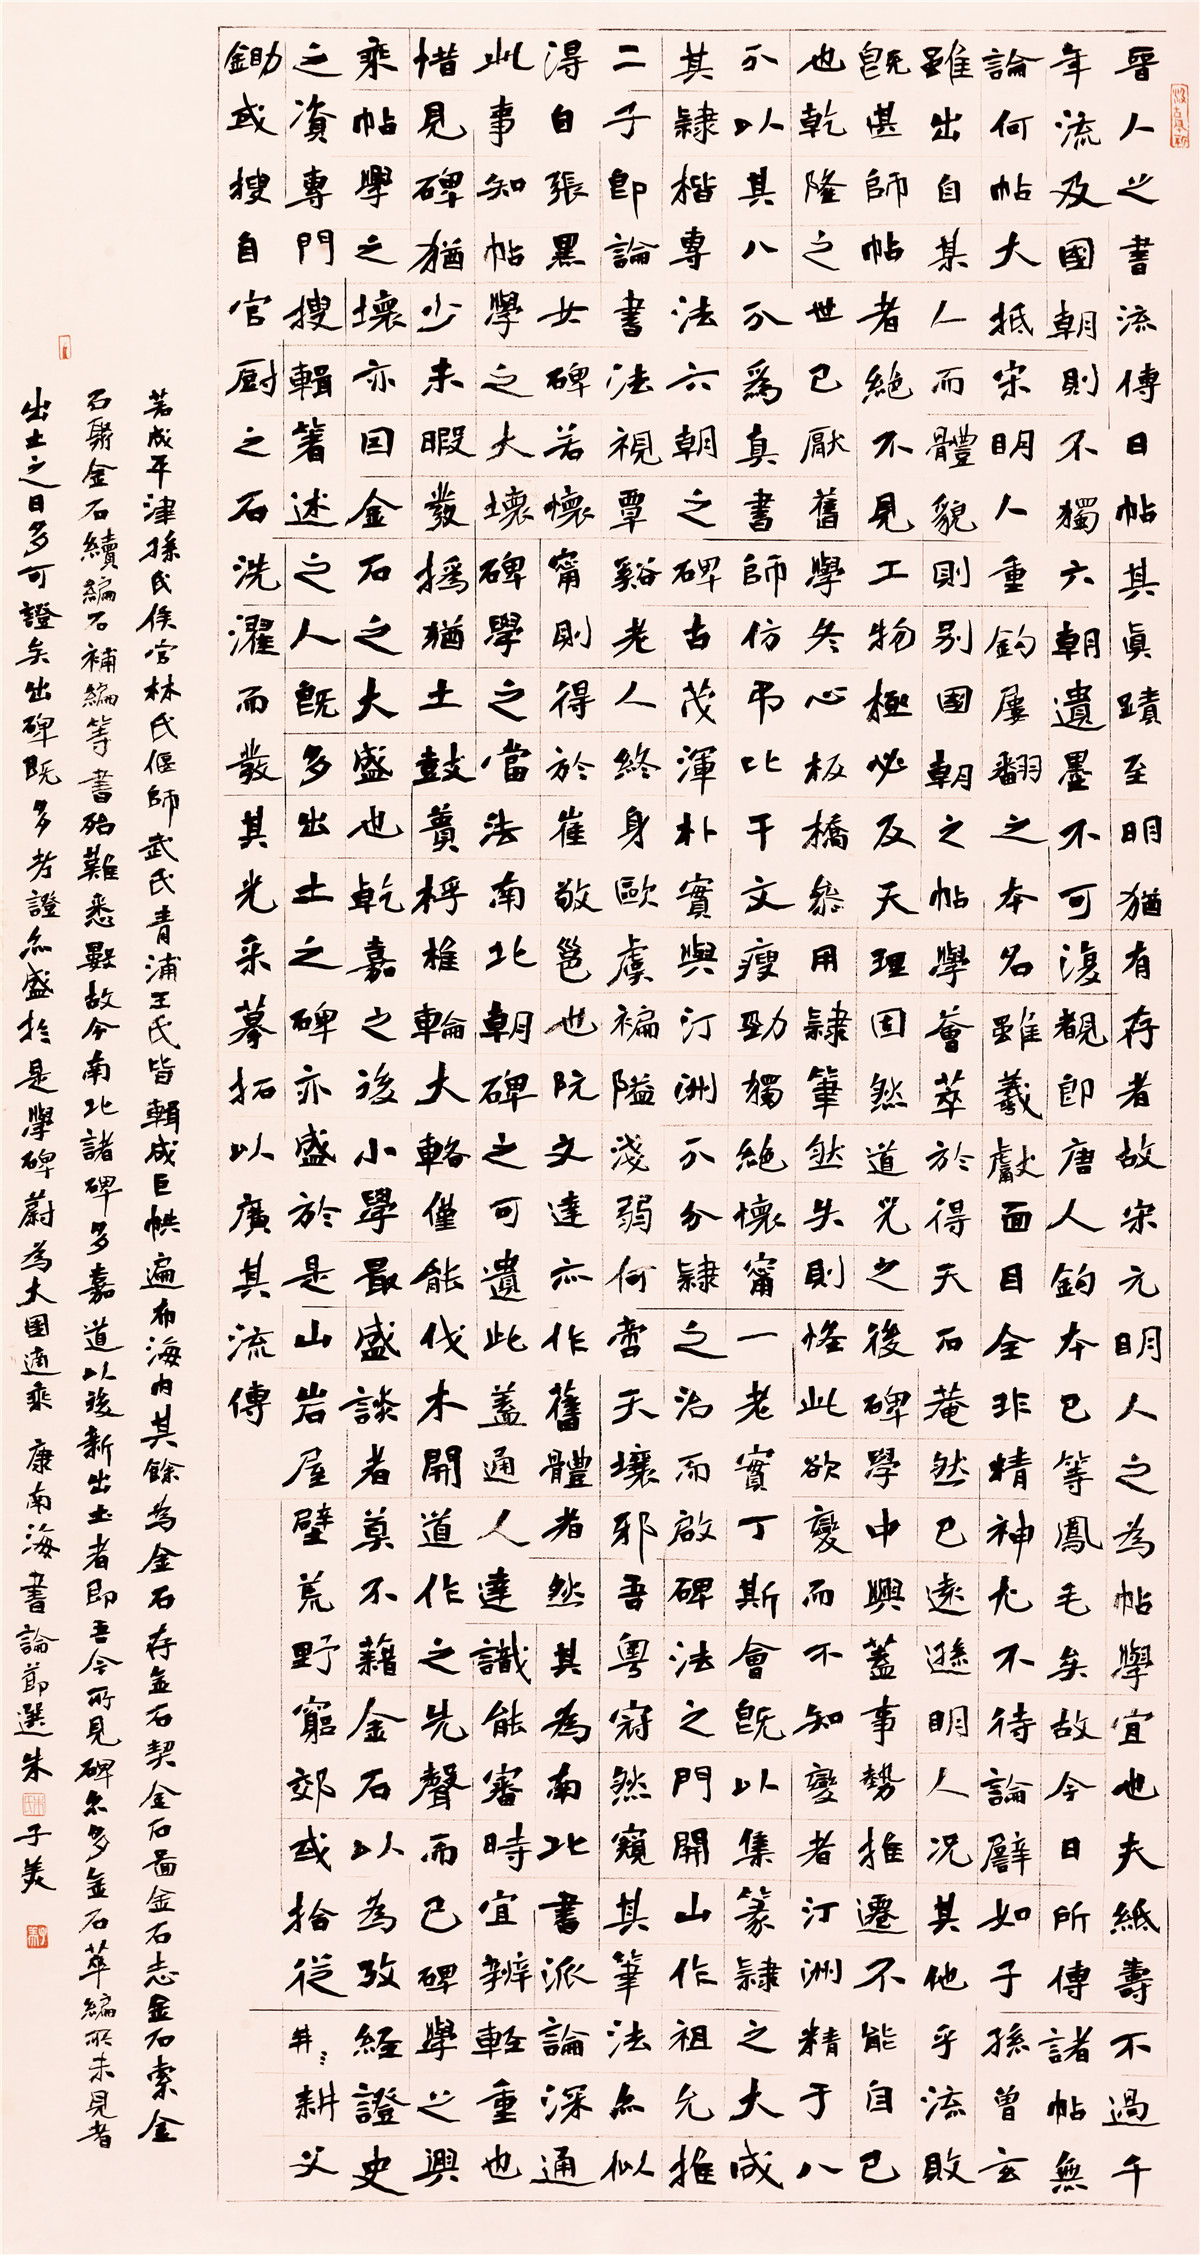 晉人之書流傳曰帖其眞蹟至明猶有存者故宋元明人之為帖學宜也夫紙壽不過千
年流及國朝則不獨六朝遺墨不可復覩即唐人鈎本已等鳳毛矣故今日所傳諸帖無
論何帖大抵宋明人重鈎屢翻之本名雖羲獻面目全非精神尤不待論譬如子孫曾玄
雖出自某人而體貌則别國朝之帖學薈萃於得天石菴然已遠遜明人況其他乎流敗
既甚師帖者絕不見工物極必反天理固然道光之後碑學中興蓋事勢推遷不能自已
也乾隆之世已厭舊學冬心板橋參用隸筆然失則怪此欲變而不知變者汀洲精于八
分以其八分爲真書師仿弔比干文瘦勁獨絕懷甯一老實丁斯會既以集篆隸之大成
其隸楷專法六朝之碑古茂渾朴實與汀洲分分隸之治而啟碑法之門開山作祖允推
二子即論書法視覃谿老人終身歐虞褊隘淺弱何啻天壤邪吾粵冠然窺其筆法亦似
得自張黑女碑若懷甯則得於崔敬邕也阮文達亦作舊體者然其為南北書派論深通
此事知帖學之大壞碑學之當法南北朝碑之可遺此蓋通人達識能審時宜辨輊重也
惜見碑猶少未暇發撝猶土鼓蕢桴椎輪大輅僅能伐木開道作之先聲而已碑學之興
乘帖學之壞亦因金石之大盛也乾嘉之後小學最盛談者莫不藉金石以為攷經證史
之資專門搜輯著述之人既多出土之碑亦盛於是山岩屋壁荒野窮郊或拾從井耕父
鋤或搜自官厨之石洗濯而發其光采摹拓以廣其流傳
若成平津孫氏侯官林氏偃師武氏青浦王氏皆輯成巨帙遍布海内其餘為金石存金石契金石圖金石志金石索金
石聚金石續編石補編等書殆難悉數故今南北諸碑多嘉道以後新出土者即吾今所見碑亦多金石萃編所未見者
出土之日多可證矣出碑既多考證亦盛於是學碑蔚為大國適乘 康南海書論節選朱子美